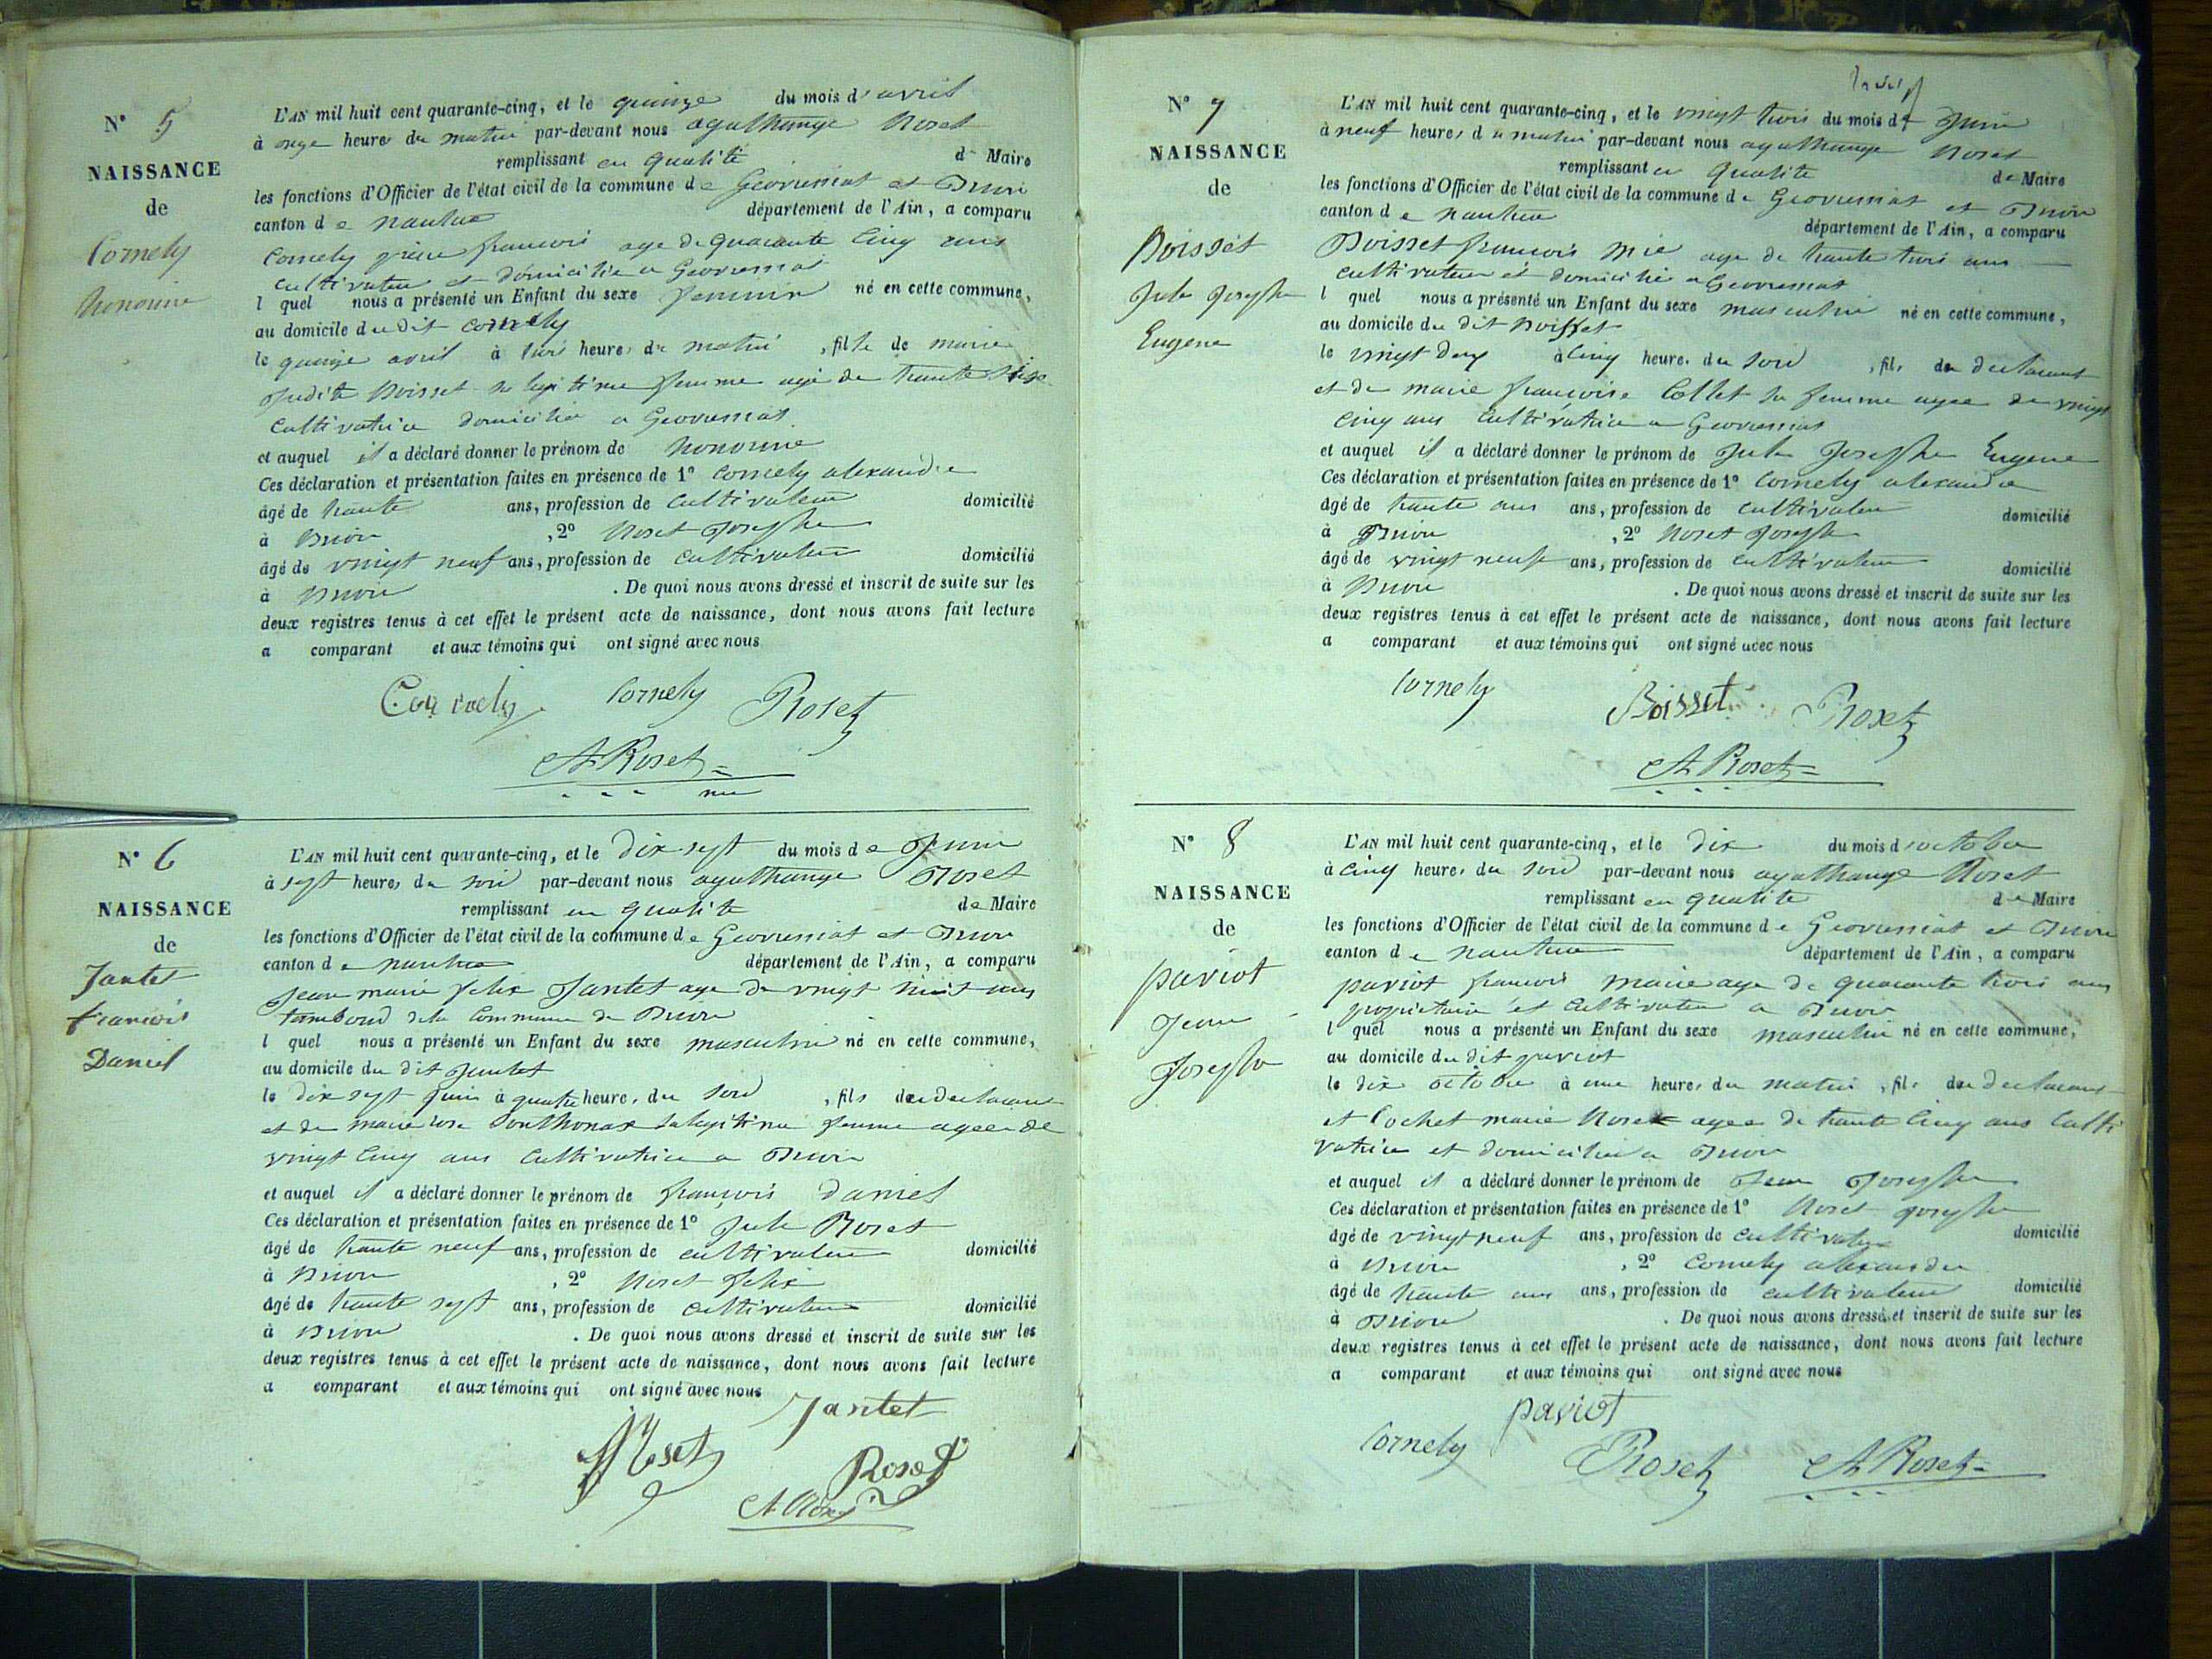 N° 5
NAISSANCE
de
Cornely
honorine
L'AN mil huit cent quarante-cinq, et le quinze du mois d'avril
à onze heures du matin par-devant nous agathange Roset
remplissant en qualité de Maire
les fonctions d'Officier de l'état civil de la commune de Geovressiat et Brion
canton de nantua département de l'Ain, a comparu
Cornely françois age de quarante cinq ans
cultivateur et domicilié a Geovressiat
l quel nous a présenté un Enfant du sexe feminin né en cette commune,
au domicile du dit cornely
le quinze avril à trois heures du matin, fille de marie
Judite Boisset sa legitime femme agée de trente
cultivatrice domicilie a Geovressiat
et auquel il a déclaré donner le prénom de honorine
Ces déclaration et présentation faites en présence de 1° Cornely alexandre
âgé de trente ans, profession de cultivateur domicilié
à Brion, 2° Roset Josephe
âgé de vingt neuf ans, profession de cultivateur domicilié
à Brion. De quoi nous avons dressé et inscrit de suite sur les
deux registres tenus à cet effet le présent acte de naissance, dont nous avons fait lecture
a comparant et aux témoins qui ont signé avec nous
Cornely Cornely Roset
At Roset
N° 6
NAISSANCE
de
Jantet
francois
Daniel
L'AN mil huit cent quarante-cinq, et le Dix sept du mois de Juin
à sept heures du soir par-devant nous agathange Roset
remplissant en qualité de Maire
les fonctions d'Officier de l'état civil de la commune de Geovressiat et Brion
canton de nantua département de l'Ain, a comparu
Jean marie felix Jantet age de vingt huit ans
tambour de la Commune de Brion
l quel nous a présenté un Enfant du sexe masculin né en cette commune,
au domicile du dit Jantet
le dix sept juin à quatre heure. du soir, fils du declarant
et de marie Ponthonax sa legitime femme agee de
vingt cinq ans Cultivatrice a Brion
et auquel il a déclaré donner le prénom de françois daniel
Ces déclaration et présentation faites en présence de 1° Jule Roset
âgé de trente neuf ans, profession de cultivateur domicilié
à Brion, 2° Roset felix
âgé de trente sept ans, profession de cultivateur domicilié
à Brion. De quoi nous avons dressé et inscrit de suite sur les
deux registres tenus à cet effet le présent acte de naissance, dont nous avons fait lecture
a comparant et aux témoins qui ont signé avec nous
Jantet
Roset Roset
At Roset
N° 7
NAISSANCE
de
Boisset
Jule Josephe
Eugene
L'AN mil huit cent quarante-cinq, et le vingt trois du mois de Juin
à neuf heures du matin par-devant nous agathange Roset
remplissant en qualité de Maire
les fonctions d'Officier de l'état civil de la commune de Geovressiat et Brion
canton de nantua département de l'Ain, a comparu
Boisset françois mie age de trente trois ans
cultivateur et domicilié a Geovressiat
l quel nous a présenté un Enfant du sexe masculin né en cette commune,
au domicile du dit Boisset
le vingt deux à cinq heure. du soir, fils du declarant
et de marie françoise Collet sa femme agee de vingt
cinq ans cultivatrice a Geovressiat
et auquel il a déclaré donner le prénom de Jule Josephe Eugene
Ces déclaration et présentation faites en présence de 1° Cornely alexandre
âgé de trente ans ans, profession de cultivateur domicilié
à Brion, 2° Roset Josephe
âgé de vingt neuf ans, profession de cultivateur domicilié
à Brion. De quoi nous avons dressé et inscrit de suite sur les
deux registres tenus à cet effet le présent acte de naissance, dont nous avons fait lecture
a comparant et aux témoins qui ont signé avec nous
Cornely Boisset Roset
At Roset
N° 8
NAISSANCE
de
pariot
Jean
Josephe
L'AN mil huit cent quarante-cinq, et le Dix du mois d'octobre
à cinq heures du soir par-devant nous agathange Roset
remplissant en qualité de Maire
les fonctions d'Officier de l'état civil de la commune de Geovressiat et Brion
canton de nantua département de l'Ain, a comparu
pariot francois marie age de quarante trois ans
propietaire et cultivateur a Brion
l quel nous a présenté un Enfant du sexe masculin né en cette commune,
au domicile du dit pariot
le dix octobre à une heures du matin, fils du declarant
et Cochet marie Rose agee de trente cinq ans culti
vatrice et domicilie a Brion
et auquel il a déclaré donner le prénom de Jean Josephe
Ces déclaration et présentation faites en présence de 1° Roset josephe
âgé de vingt neuf ans, profession de cultivateur domicilié
à Brion, 2° Cornely alexandre
âgé de trente ans ans, profession de cultivateur domicilié
à Brion. De quoi nous avons dressé et inscrit de suite sur les
deux registres tenus à cet effet le présent acte de naissance, dont nous avons fait lecture
a comparant et aux témoins qui ont signé avec nous
pariot
Cornely Roset At Roset